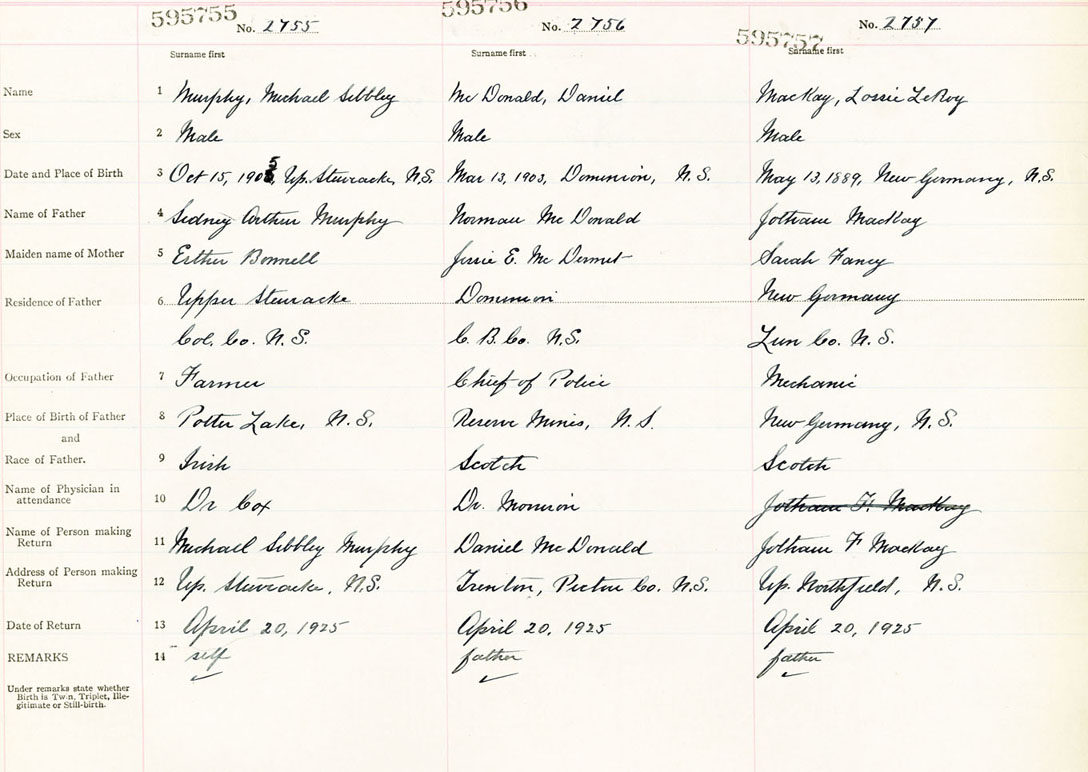 595755 595756 595757
No. 2755 No. 2756 No. 2757
Surname first Surname first Surname first
Name 1 Murphy, Michael Sibbley McDonald, Daniel MacKay, Lossie LeRoy
Sex 2 Male Male Male
Date and Place of Birth 3 Oct 15, 1905, Up. Stewiacke, N.S. Mar 13, 1903, Dominion, N.S. May 13, 1889, New Germany, N.S.
Name of Father 4 Sidney Arthur Murphy Norman McDonald Jotham MacKay
Maiden name of Mother 5 Esther Bonnell Jessie E. McDermit Sarah Fancy
Residence of Father 6 Upper Stewiacke Dominion New Germany
Col. Co. N.S. C. B. Co. N.S. Lun Co. N.S.
Occupation of Father 7 Farmer Chief of Police Mechanic
Place of Birth of Father 8 Potter Lake, N.S. Reserve Mines, N.S. New Germany, N.S.
and
Race of Father. 9 Irish Scotch Scotch
Name of Physician in
attendance 10 Dr Cox Dr. Morrison Jotham F. MacKay
Name of Person making
Return 11 Michael Sibbley Murphy Daniel McDonald Jotham F MacKay
Address of Person making
Return 12 Up. Stewiacke, N.S. Trenton, Pictou Co. N.S. Up. Northfield, N.S.
Date of Return 13 April 20, 1925 April 20, 1925 April 20, 1925
REMARKS 14 self father father
Under remarks state whether
Birth is Twin, Triplet, Ille-
gitimate or Still-birth.